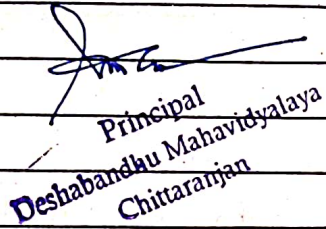 Principal
Deshabandhu Mahavidyalaya
Chittaranjan